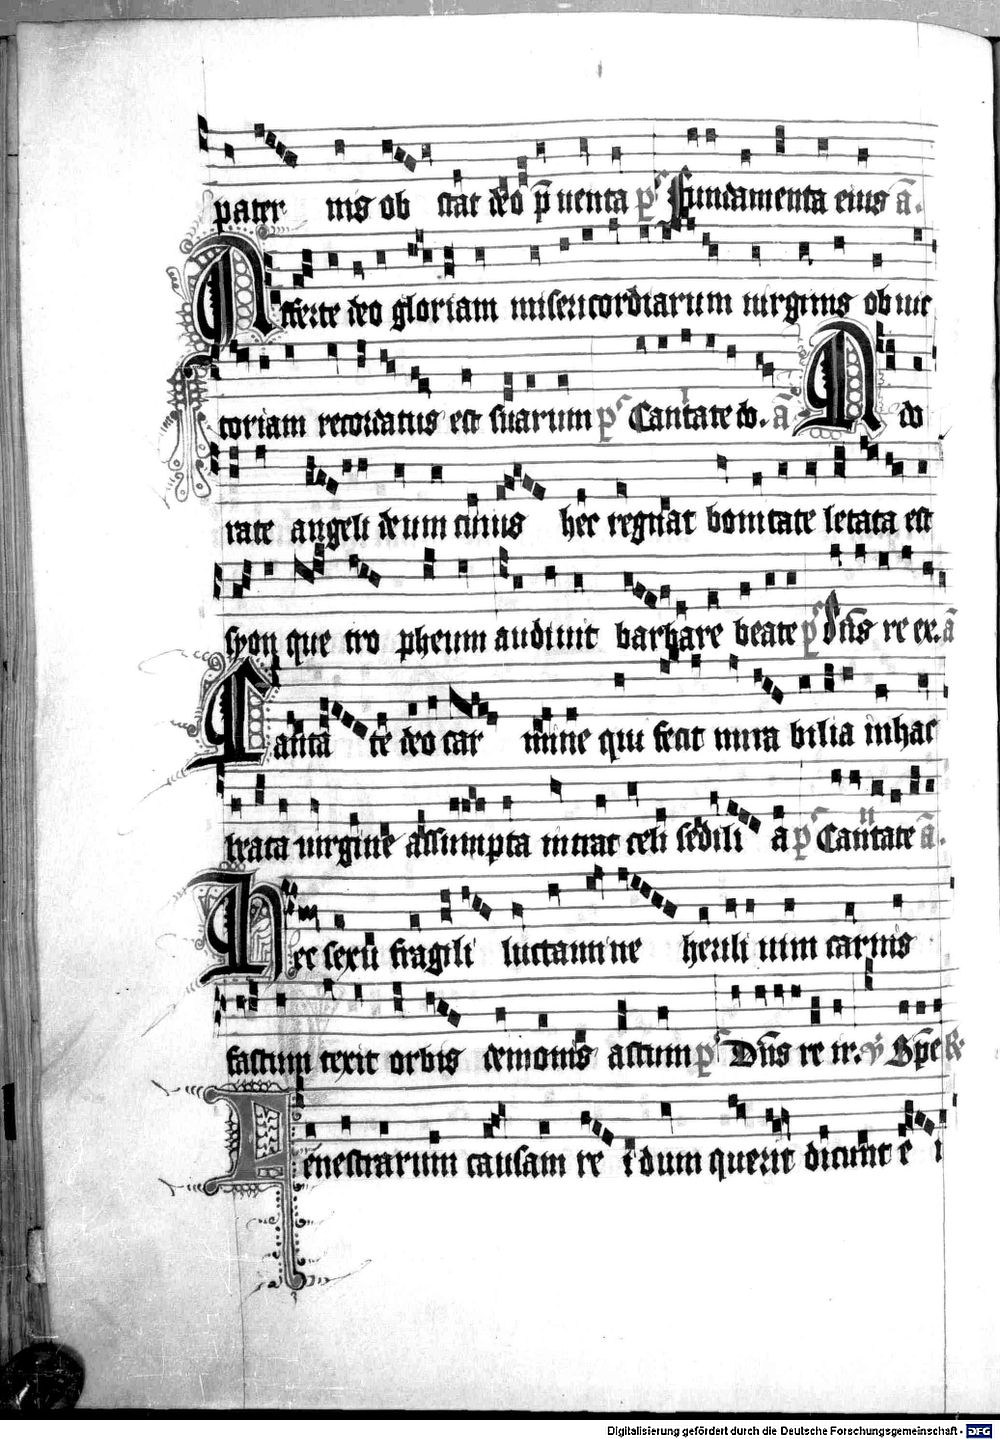 pater nis ob stat deo p̄ uenta p̄s Fundamenta eius a̅.
Afferte deo gloriam misericordiarum uirginis ob uic
toriam recordatus est suarum p̄s Cantate do. a̅ Ado
rate angeli deum cuius hec regnat bonitate letata est
syon que tro pheum audiuit barbare beate p̄s Dn̄s re ex. a̅
Canta te deo car mine qui fecit mira bilia in hac
beata uirgine assumpta intrat celi sedili a p̄s Cantate a̅.
Hec sexu fragili luctami ne heuli uim carnis
fastum texit orbis demonis astum p̄s Dn̄s re ir. v̄ Spe R̄
Fenestrarum causam re i dum querit dicunt e i
Digitalisierung gefördert durch die Deutsche Forschungsgemeinschaft - DFG